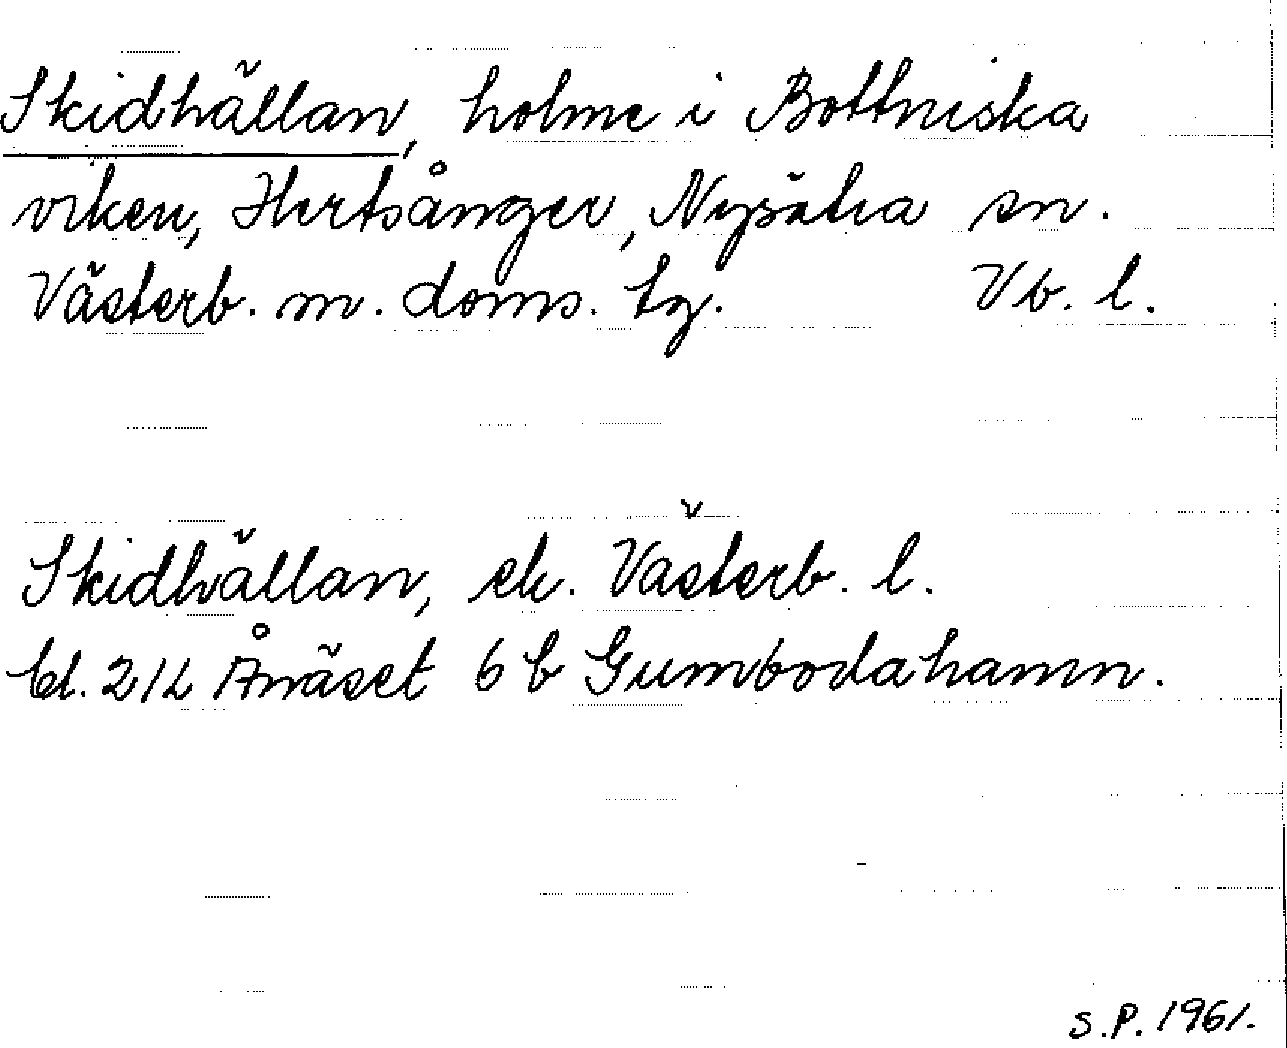 Skidhällan, holme i Bottniska
viken, Hertsånger, Nysätra sn.
Västerb. m. doms. tg. Vb. l.
Skidhällan, ek. Västerb. l.
bl. 21L Ånäset 6 b Gumbodahamn.
S.P. 1961.